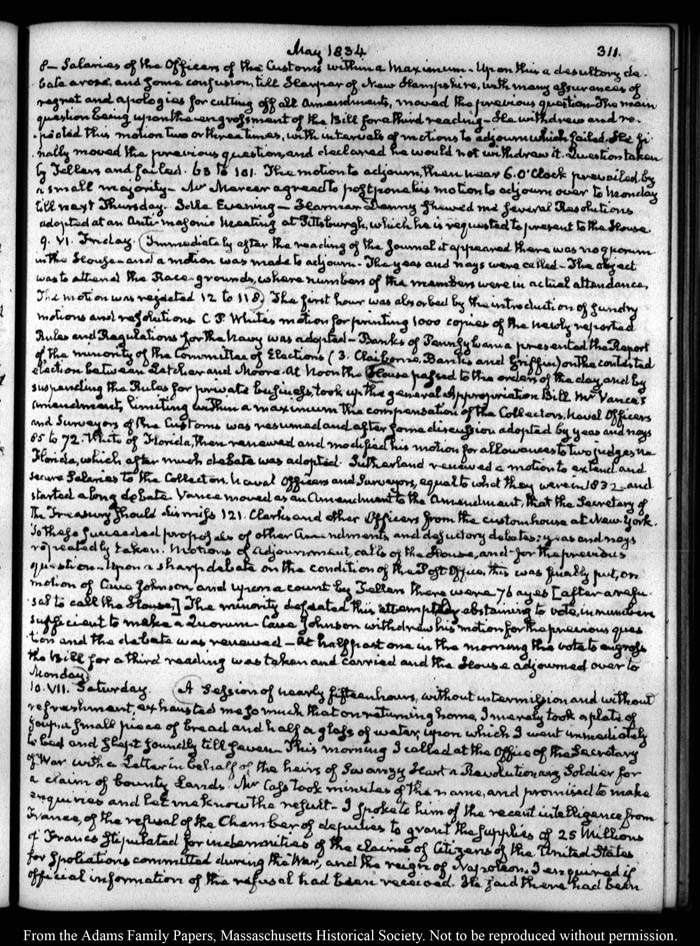 May 1834 311.
8— Salaries of the Officers of the Customs within a Maximum. Upon this a desultory de-
bate arose, and some confusion, till Harper of New Hampshire, with many assurances of
regret and apologies for cutting off all Amendments, moved the previous question. The main
question being upon the engrossment of the Bill for a third reading— He withdrew and re-
peated this motion two or three times, with intervals of motions to adjourn which failed. He fi-
nally moved the previous question, and declared he would not withdraw it. Question taken
by Tellers and failed. 63 to 101. The motion to adjourn, then near 6. O'Clock prevailed by
a small majority— Mr Mercer agreed to postpone his motion to adjourn over to Monday
till next Thursday. Idle Evening— Harmar Denny shewed me several Resolutions
adopted at an Anti-masonic Meeting at Pittsburgh, which he is requested to present to the House
9. VI. Friday. Immediately after the reading of the Journal it appeared there was no quorum
in the House— and a motion was made to adjourn. The yeas and nays were called— The object
was to attend the Race-grounds, where numbers of the members were in actual attendance.
The motion was rejected 12 to 118. The first hour was absorbed by the introduction of sundry
motions and resolutions. C. P. White's motion for printing 1000 copies of the newly reported
Rules and Regulations for the Navy was adopted— Banks of Pennsylvania presented the Report
of the minority of the Committee of Elections (3. Claiborne, Banks and Griffin) on the contested
election between Letcher and Moore. At Noon the House passed to the orders of the day, and by
suspending the Rules for private business took up the general Appropriation Bill. Mr Vance's
Amendment, limiting within a maximum the compensation of the Collectors, Naval Officers
and Surveyors of the Customs was resumed and after some discussion adopted by yeas and nays
85 to 72. White of Florida, then renewed and modified his motion for allowances to two judges in
Florida, which after much debate was adopted. Sutherland renewed a motion to extend and
secure Salaries to the Collectors, Naval Officers and Surveyors, equal to what they were in 1832. and
started a long debate. Vance moved as an Amendment to the Amendment, that the Secretary of
the Treasury should dismiss 121. Clerks and other Officers from the customhouse at New-York.
To these succeeded proposals of other Amendments and desultory debates; yeas and nays
repeatedly taken. Motions of adjournment, calls of the House, and for the previous
question— Upon a sharp debate on the condition of the Post-Office, this was finally put, on
motion of Cave Johnson and upon a count by Tellers there were 76 ayes [after a refu-
sal to call the House.] The minority defeated this attempt by abstaining to vote, in numbers
sufficient to make a Quorum— Cave Johnson withdrew his motion for the previous ques-
tion and the debate was renewed— At half past one in the morning the vote to engross
the Bill for a third reading was taken and carried and the House adjourned over to
Monday.
10. VII. Saturday. A Session of nearly fifteen hours, without intermission and without
refreshment, exhausted me so much that on returning home, I merely took a plate of
soup, a small piece of bread and half a glass of water, upon which I went immediately
to bed and slept soundly till seven. This morning I called at the Office of the Secretary
of War with a Letter in behalf of the heirs of Swanzy Hart a Revolutionary Soldier for
a claim of bounty Lands. Mr Cass took minutes of the name, and promised to make
enquiries and let me know the result— I spoke to him of the recent intelligence from
France, of the refusal of the Chamber of deputies to grant the supplies of 25 Millions
of Francs stipulated for indemnities of the claims of Citizens of the United States
for spoliations committed during the War, and the reign of Napoleon. I enquired if
official information of the refusal had been received. He said there had been
From the Adams Family Papers, Massachusetts Historical Society. Not to be reproduced without permission.